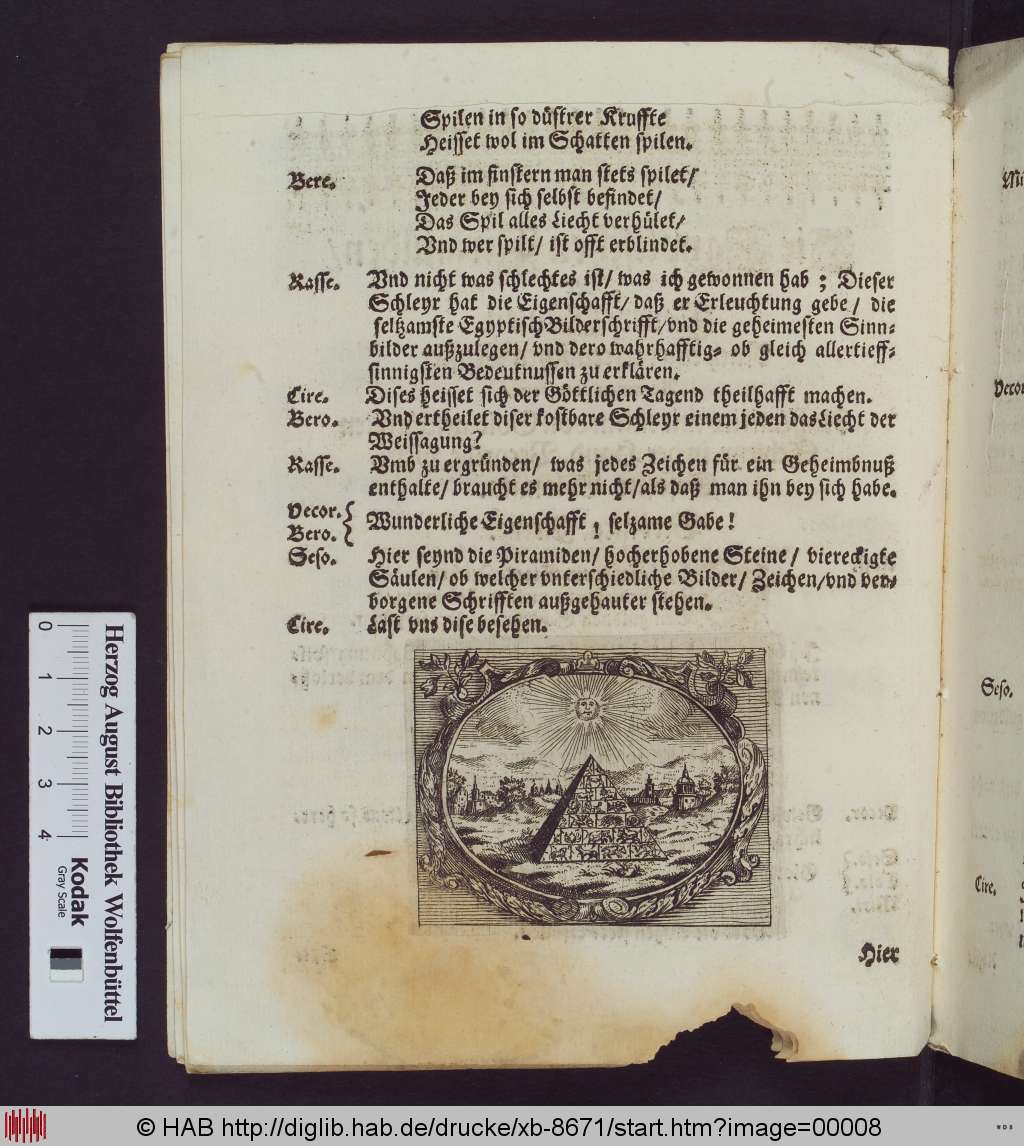 Spilen in so düstrer Kruffte
Heisset wol im Schatten spilen.
Bere. Daß im finstern man stets spilet/
Jeder bey sich selbst befindet/
Das Spil alles Liecht verhület/
Vnd wer spilt/ ist offt erblindet.
Rasse. Vnd nicht was schlechtes ist/ was ich gewonnen hab; Dieser
Schleyr hat die Eigenschafft/ daß er Erleuchtung gebe/ die
seltzamste Egyptisch Bilderschrifft/ vnd die geheimesten Sinn-
bilder außzulegen/ vnd dero wahrhafftig- ob gleich allertieff-
sinnigsten Bedeutnussen zu erklären.
Cire. Dises heisset sich der Göttlichen Tagend theilhafft machen.
Bero. Vnd ertheilet diser kostbare Schleyr einem jeden das Liecht der
Weissagung?
Rasse. Vmb zu ergründen/ was jedes Zeichen für ein Geheimbnuß
enthalte/ braucht es mehr nicht/ als daß man ihn bey sich habe.
Decor.
Bero. Wunderliche Eigenschafft, selzame Gabe!
Seso. Hier seynd die Piramiden/ hocherhobene Steine/ viereckigte
Säulen/ ob welcher vnterschiedliche Bilder/ Zeichen/ vnd ver-
borgene Schrifften außgehauter stehen.
Cire. Last vns dise besehen.
Hier
Decor
Seso.
Cire.
0 1 2 3 4
Herzog August Bibliothek Wolfenbüttel
Kodak
Gray Scale
© HAB http://diglib.hab.de/drucke/xb-8671/start.htm?image=00008